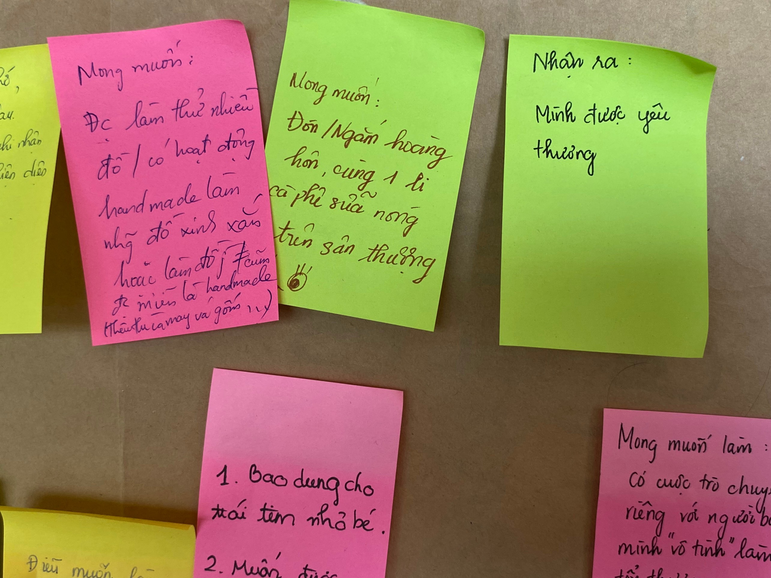 Mong muốn:
Đc làm thử nhiều
đồ / có hoạt động
handmade làm
nhg đồ xinh xắn
hoặc làm đồ j # cũng
đc miễn là handmade
thêu thùa may vá gốm,..)
Mong muốn:
Đón/Ngắm hoàng
hôn, cùng 1 li
cà phê sữa nóng
trên sân thượng
Nhận ra:
Mình được yêu
thương
1. Bao dung cho
trái tim nhỏ bé.
2. Muốn được
Mong muốn làm:
Có cuộc trò chuy
riêng với người b
mình "vô tình" làm
Điều muốn